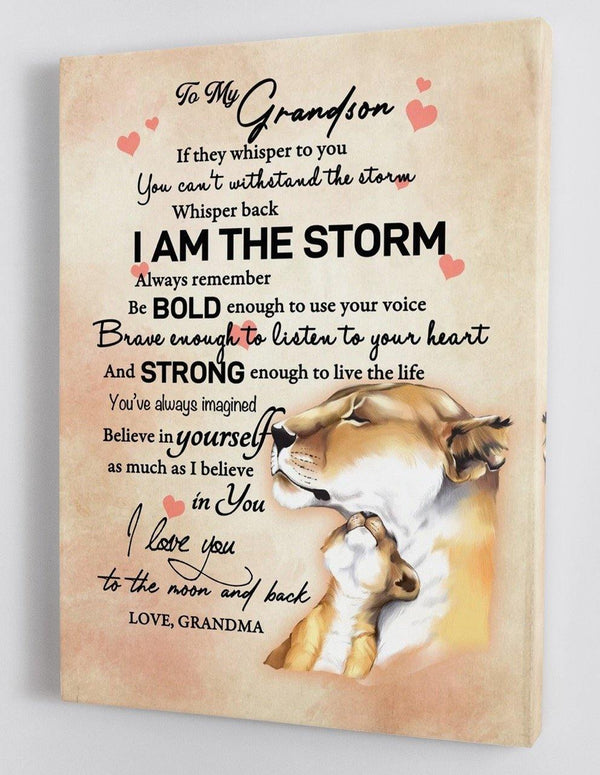 To My Grandson
If they whisper to you
You can't withstand the storm
Whisper back
I AM THE STORM
Always remember
Be BOLD enough to use your voice
Brave enough to listen to your heart
And STRONG enough to live the life
You've always imagined
Believe in yourself
as much as I believe
in You
I love you
to the moon and back
LOVE, GRANDMA